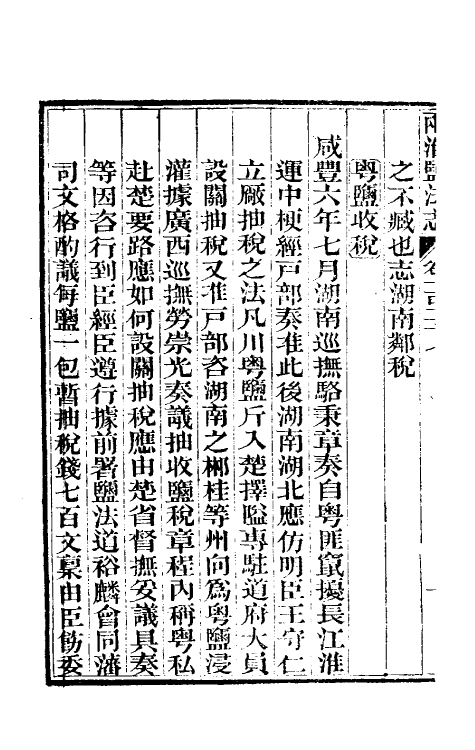 兩淮鹽法志 卷一百二十
之不臧也志湖南鄰稅
粵鹽收稅
咸豐六年七月湖南巡撫駱秉章奏自粵匪竄擾長江淮
運中梗經戸部奏准此後湖南湖北應仿明臣王守仁
立厰抽稅之法凡川粵鹽斤入楚擇隘專駐道府大員
設關抽稅又准戸部咨湖南之郴桂等州向爲粵鹽浸
灌據廣西巡撫勞崇光奏議抽收鹽稅章程內稱粵私
赴楚要路應如何設關抽稅應由楚省督撫妥議具奏
等因咨行到臣經臣遵行據前署鹽法道裕麟會同藩
司文格酌議每鹽一包暫抽稅錢七百文稟由臣飭委